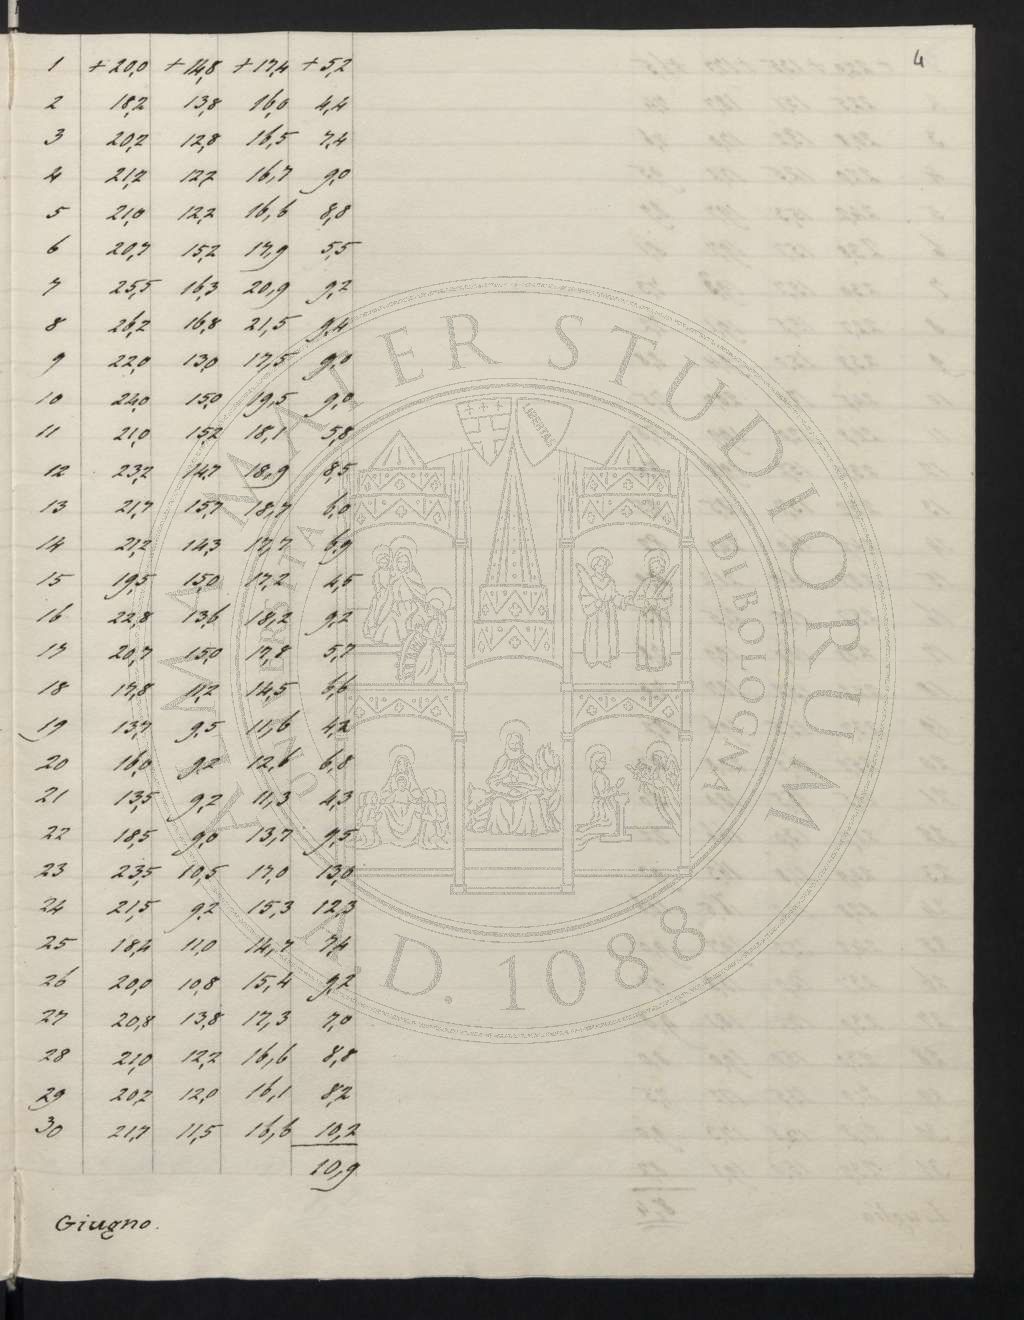 4
1 +20,0 +14,8 +17,4 +5,2
2 18,2 13,8 16,0 4,4
3 20,2 12,8 16,5 7,4
4 21,2 12,2 16,7 9,0
5 21,0 12,2 16,6 8,8
6 20,7 15,2 17,9 5,5
7 25,5 16,3 20,9 9,2
8 26,2 16,8 21,5 9,4
9 22,0 13,0 17,5 9,0
10 24,0 15,0 19,5 9,0
11 21,0 15,2 18,1 5,8
12 23,2 14,7 18,9 8,5
13 21,7 15,7 18,7 6,0
14 21,2 14,3 17,7 6,9
15 19,5 15,0 17,2 4,5
16 22,8 13,6 18,2 9,2
17 20,7 15,0 17,8 5,7
18 17,8 11,2 14,5 6,6
19 13,7 9,5 11,6 4,2
20 16,0 9,2 12,6 6,8
21 13,5 9,2 11,3 4,3
22 18,5 9,0 13,7 9,5
23 23,5 10,5 17,0 13,0
24 21,5 9,2 15,3 12,3
25 18,4 11,0 14,7 7,4
26 20,0 10,8 15,4 9,2
27 20,8 13,8 17,3 7,0
28 21,0 12,2 16,6 8,8
29 20,2 12,0 16,1 8,2
30 21,7 11,5 16,6 10,2
10,9
Giugno.
ALMA MATER STUDIORUM
A.D. 1088
UNIVERSITA DI BOLOGNA
LIBERTAS